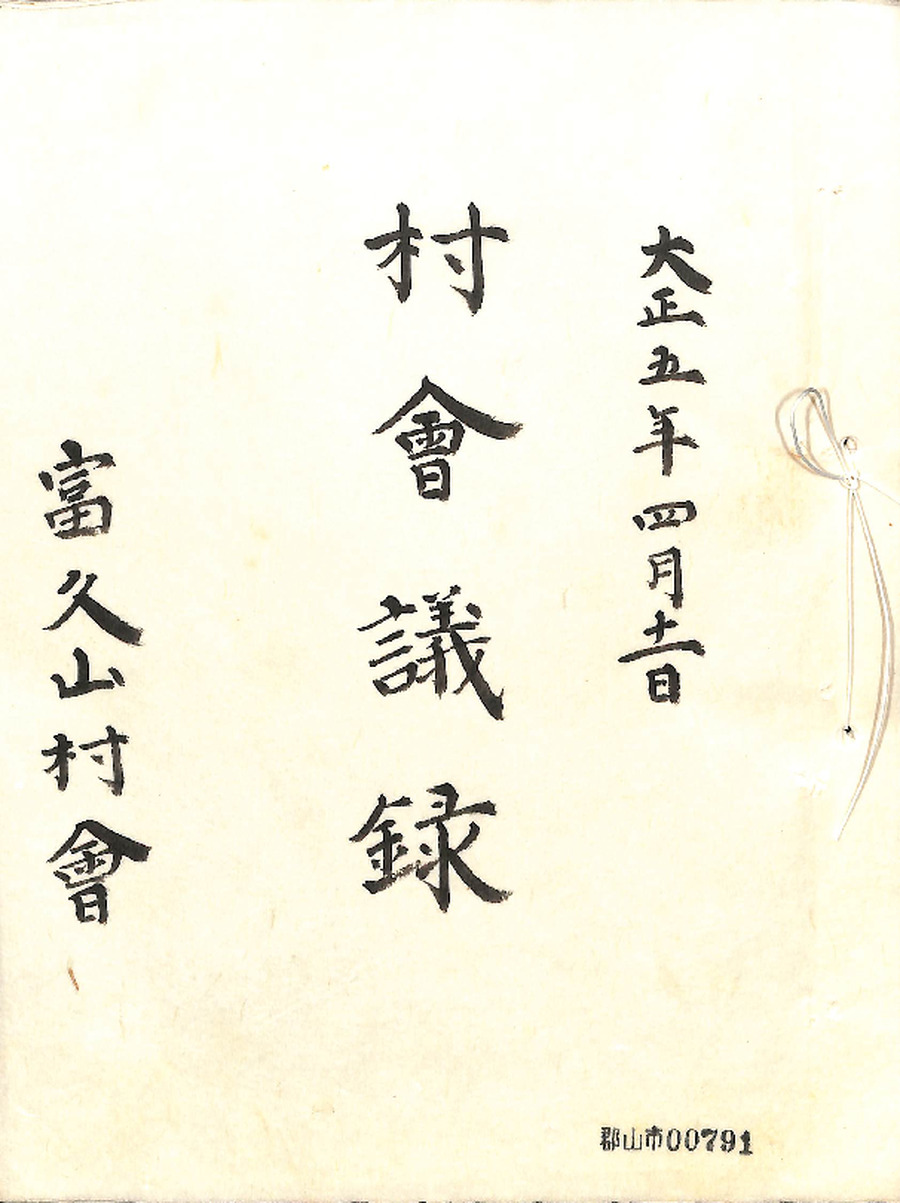 大正五年四月十二日
村會議録
富久山村會
郡山市00791